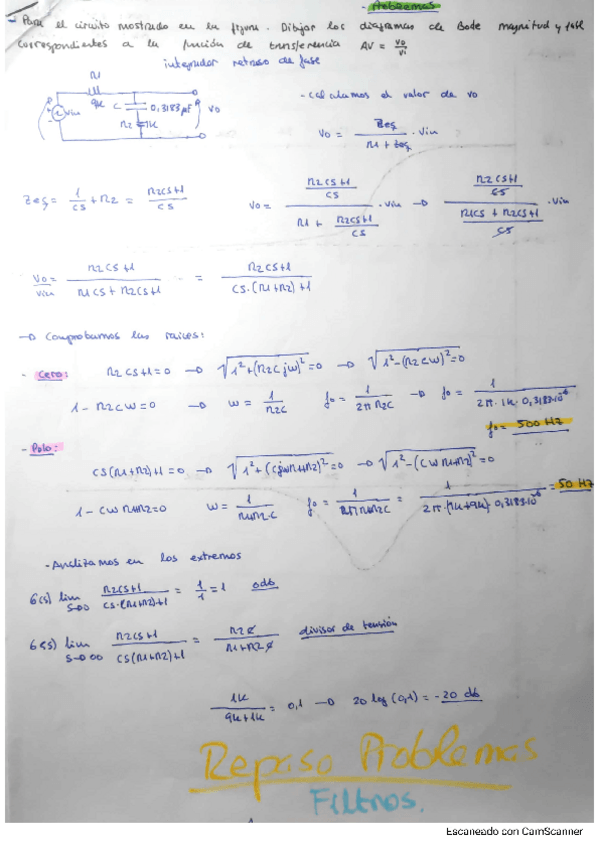 Problemas
Para el circuito mostrado en la figura. Dibujar los diagramas de Bode magnitud y fase
correspondientes a la función de transferencia AV = Vo/Vi
integrador retraso de fase
R1
9k C 0,3183 µF Vo
Vin
R2 1k
- Calculamos el valor de vo
Vo = Zeq / (R1 + Zeq) · Vin
Zeq = 1/CS + R2 = (R2CS+1)/CS
Vo = ((R2CS+1)/CS) / (R1 + (R2CS+1)/CS) · Vin → ((R2CS+1)/CS) / ((R1CS + R2CS+1)/CS) · Vin
Vo/Vin = (R2CS+1) / (R1CS + R2CS+1) = (R2CS+1) / (CS·(R1+R2)+1)
→ Comprobamos las raices:
- Cero: R2CS+1=0 → √(1²+(R2Cjw)²)=0 → √(1²-(R2Cw)²)=0
1 - R2Cw=0 → w = 1/R2C fo = 1/(2π R2C) → fo = 1/(2π·1k·0,3183·10⁻⁶)
fo = 500 Hz
- Polo:
CS(R1+R2)+1=0 → √(1²+(CjwR1+R2)²)=0 → √(1²-(CwR1+R2)²)=0
1 - CwR1+R2=0 w = 1/(R1+R2·C) fo = 1/(2πR1+R2C) = 1/(2π·(1k+9k)·0,3183·10⁻⁶) = 50 Hz
- Analizamos en los extremos
G(s) lim S→0 (R2CS+1)/(CS·(R1+R2)+1) = 1/1 = 1 0db
G(s) lim S→∞ (R2CS+1)/(CS(R1+R2)+1) = R2C/(R1+R2C) divisor de tensión
1k/(9k+1k) = 0,1 → 20 log (0,1) = -20 db
Repaso Problemas
Filtros.
Escaneado con CamScanner